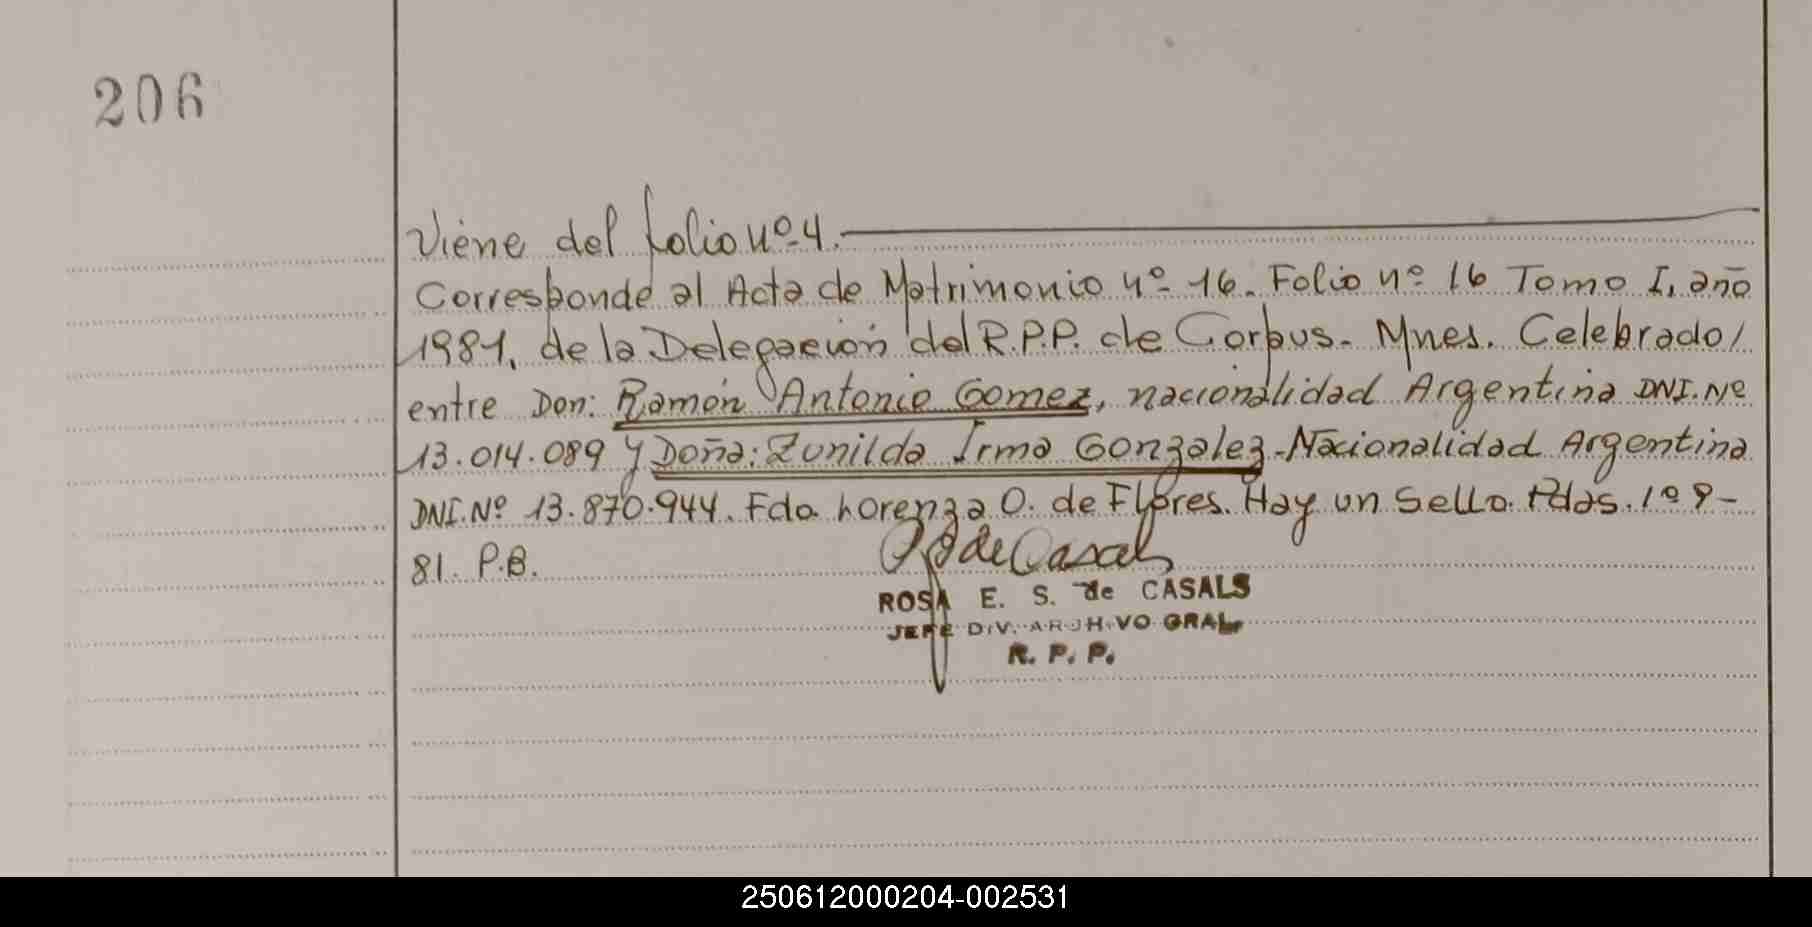 206
Viene del folio nº 4.
Corresponde al Acta de Matrimonio nº 16. Folio nº 16 Tomo I, año
1981, de la Delegación del R.P.P. de Corpus- Mnes. Celebrado/
entre Don: Ramón Antonio Gomez, nacionalidad Argentina DNI.Nº
13.014.089 y Doña: Zunilda Irma Gonzalez-Nacionalidad Argentina
DNI.Nº 13.870.944. Fdo. Lorenza O. de Flores. Hay un Sello. Pdas. 1º 9-
81. P.B.
de Casals
ROSA E. S. de CASALS
JEFE DIV. ARCHIVO GRAL.
R. P. P.
250612000204-002531